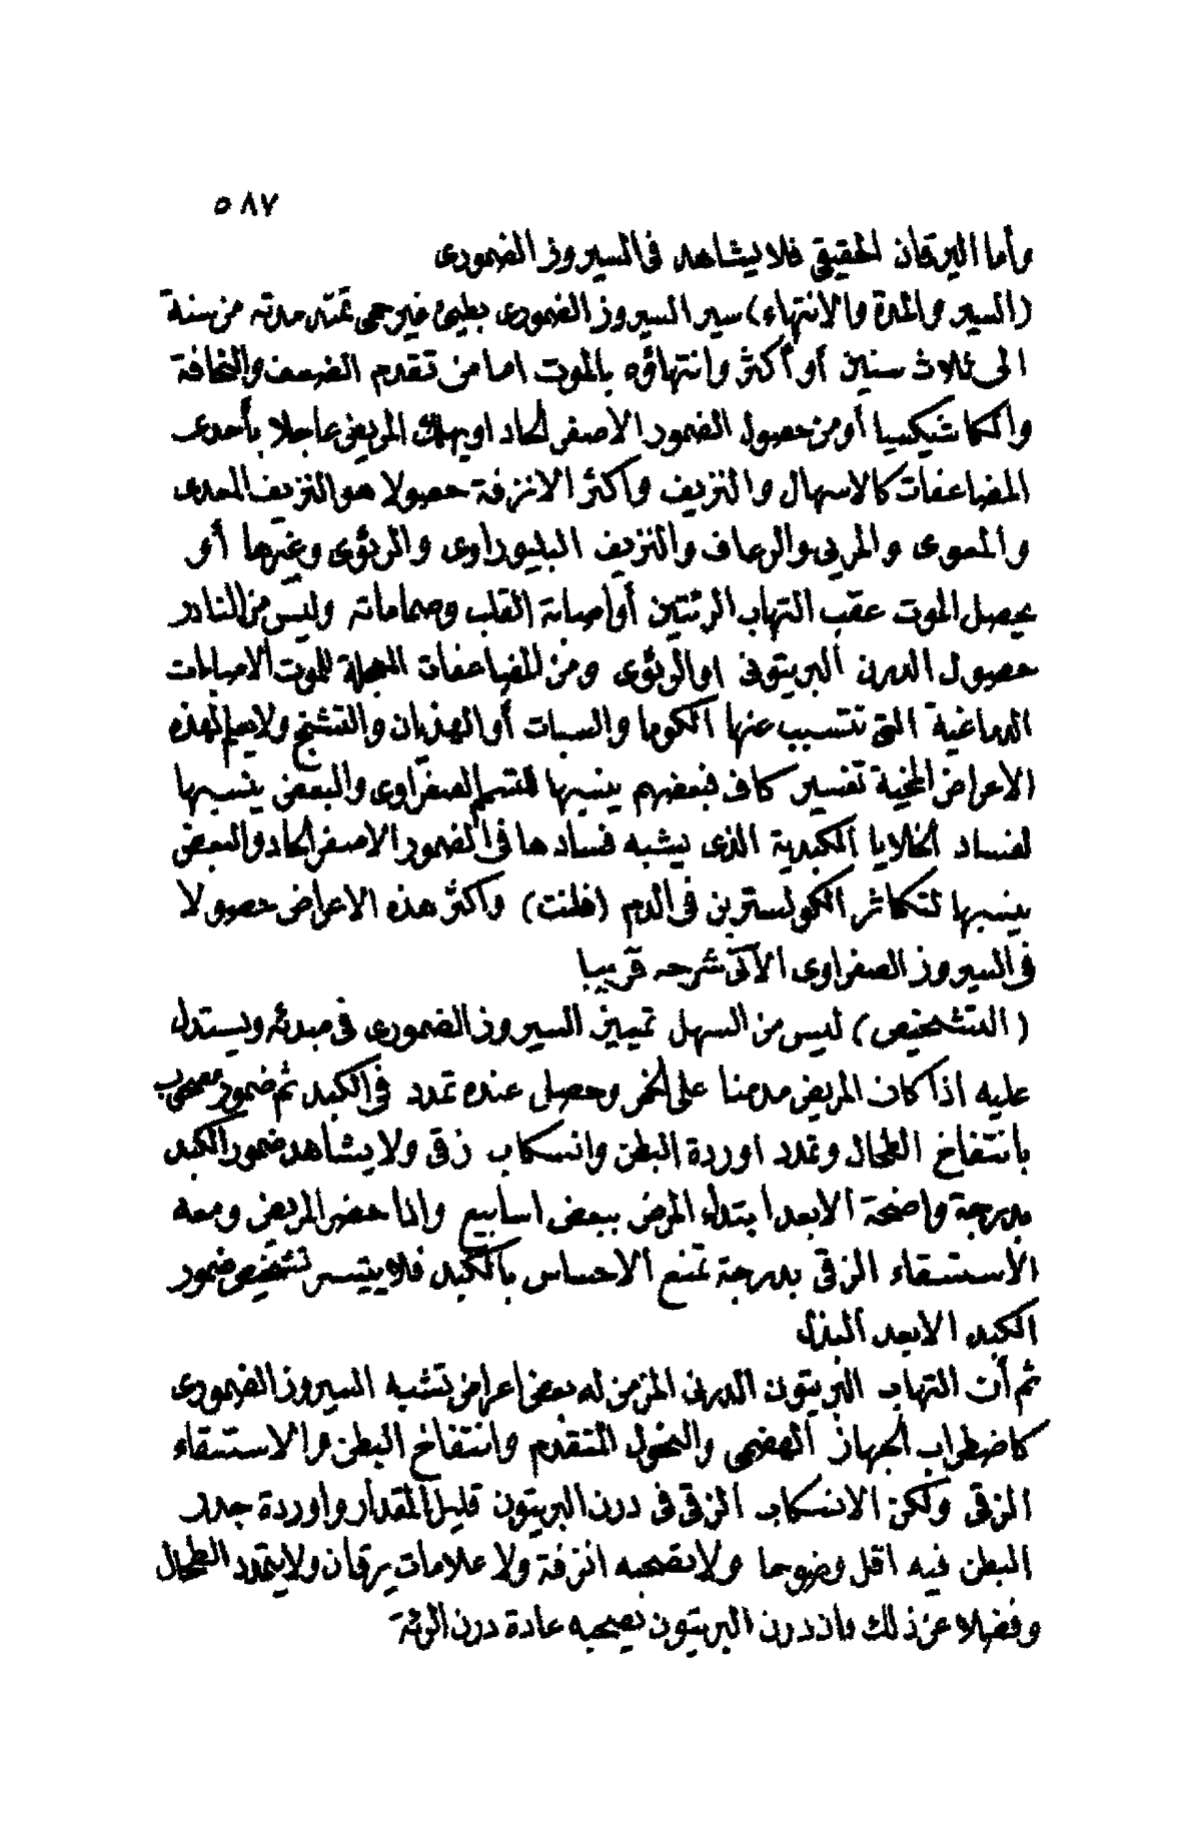 ٥٨٧
وأما اليرقان الحقيقي فلا يشاهد فى السيروز الضمورى
(السير والمدة والانتهاء) سير السيروز الضمورى بطيئ غير حمى تمتد مدته من سنة
الى ثلاث سنين أو أكثر وانتهاؤه بالموت اما من تقدم الضعف والنحافة
والكاشيكسيا أو من حصول الضمور الأصفر الحاد او يهلك المريض عاجلا بأحدى
المضاعفات كالاسهال والنزيف وأكثر الانزفة حصولا هو النزيف المعدى
والمعوى والمريى والرعاف والنزيف البليوراوى والرئوى وغيرها أو
يحصل الموت عقب التهاب الرئتين أو اصابة القلب وصماماته وليس من النادر
حصول الدرن البريتونى او الرئوى ومن المضاعفات المعجلة للموت الاصابات
الدماغية التى تتسبب عنها الكوما والسبات أو الهذيان والتشنج ولا يعلم لهذه
الاعراض المخية تفسير كاف فبعضهم ينسبها للتسمم الصفراوى والبعض ينسبها
لفساد الخلايا الكبدية الذى يشبه فسادها فى الضمور الاصفر الحاد والبعض
ينسبها لتكاثر الكولسترين فى الدم (فلنت) وأكثر هذه الاعراض حصولا
فى السيروز الصفراوى الآتى شرحه قريبا
(التشخيص) ليس من السهل تمييز السيروز الضمورى فى مبدئه ويستدل
عليه اذا كان المريض مدمنا على الخمر وحصل عنده تمدد فى الكبد ثم ضمور مصحوب
بانتفاخ الطحال وتمدد اوردة البطن وانسكاب زقى ولا يشاهد ضمور الكبد
بدرجة واضحة الا بعد ابتداء المرض ببعض اسابيع واذا حضر المريض ومعه
الأستسقاء الزقى بدرجة تمنع الاحساس بالكبد فلا يتيسر تشخيص ضمور
الكبد الا بعد البذل
ثم أن التهاب البريتون الدرنى المزمن له بعض اعراض تشبه السيروز الضمورى
كاضطراب الجهاز الهضمى والنحول المتقدم وانتفاخ البطن والاستسقاء
الزقى ولكن الانسكاب الزقى فى درن البريتون قليل المقدار واوردة جدر
البطن فيه اقل وضوحا ولا تصحبه انزفة ولا علامات يرقان ولا يتمدد الطحال
وفضلا عن ذلك فان درن البريتون تصحبه عادة درن الرئة